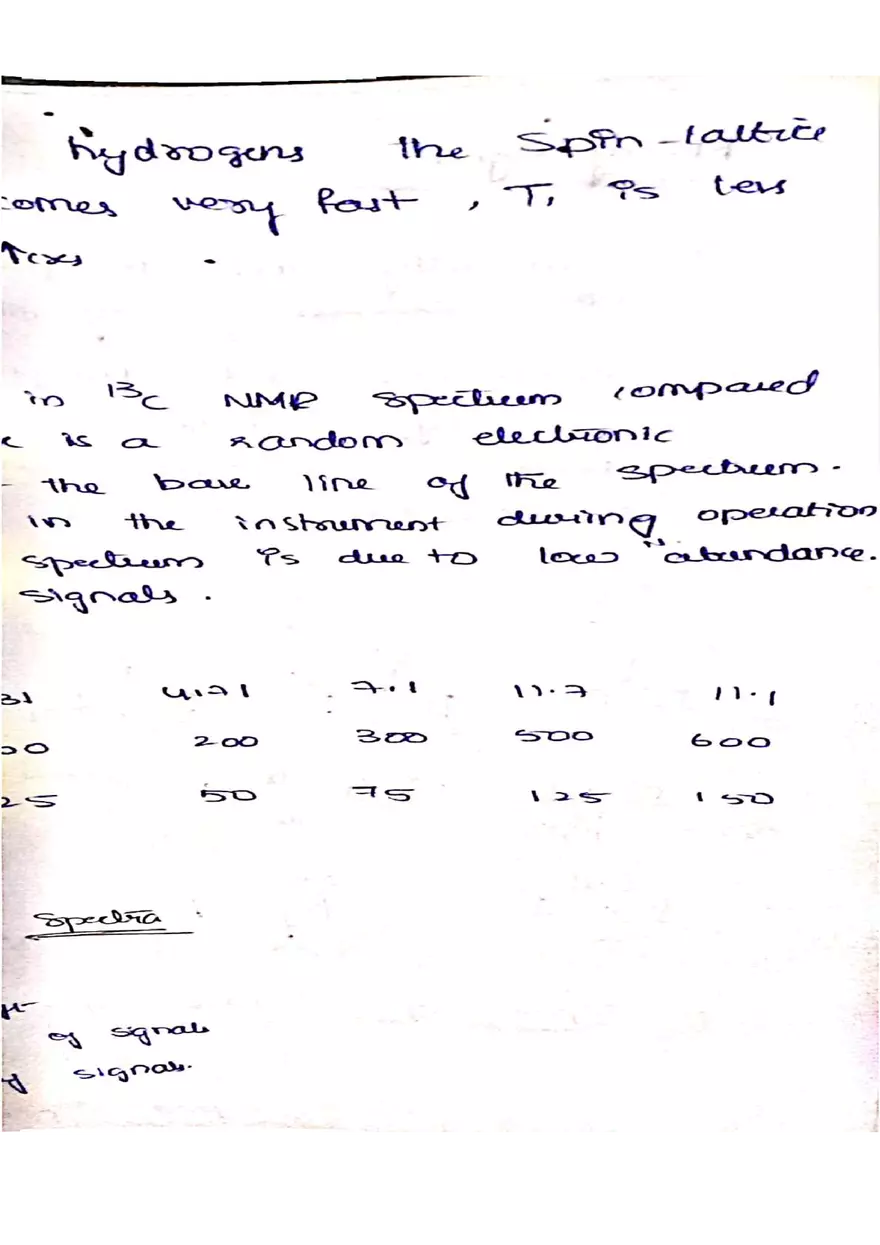 hydrogens the Spin-lattice
comes very fast, T₁ is less
in ¹³C NMR spectrum compared
is a random electronic
the base line of the spectrum.
in the instrument during operation
spectrum is due to low abundance.
signals.
31 4.71 7.1 11.7 11.1
00 200 300 500 600
25 50 75 125 150
Spectra
of signals
signals.